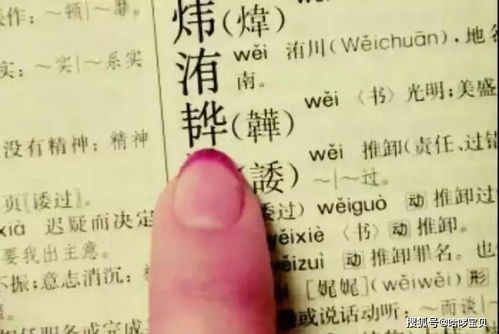 作:~顿|~靡。
实:~实|~系实
没有精神;精神
页〖诿过〗
xià 迟疑而决定
要我出主意。
不振:意志消沉:
任职务或完成
炜(煒)
洧 wěi 洧川(Wěichuān),地名
南。
韡(韡) wěi 〈书〉光明;美盛
(諉) wěi 推卸(责任、过错
~|~过。
委过) wěiguò 动 推卸过
wěixiè 〈书〉动 推卸。
wěizuì 动 推卸罪名。也
[娓娓](wěiwěi) 形
或说话动听:~而谈|~
搜狐号@哈啰宝贝